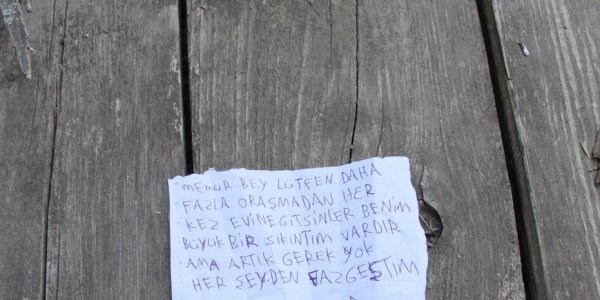 MEMUR BEY LÜTFEN DAHA
FAZLA ORAŞMADAN HER
KEZ EVİNE GİTSİNLER BENİM
BÜYÜK BİR SIKINTIM VARDIR
AMA ARTIK GEREK YOK
HER ŞEYDEN FAZGEŞTİM